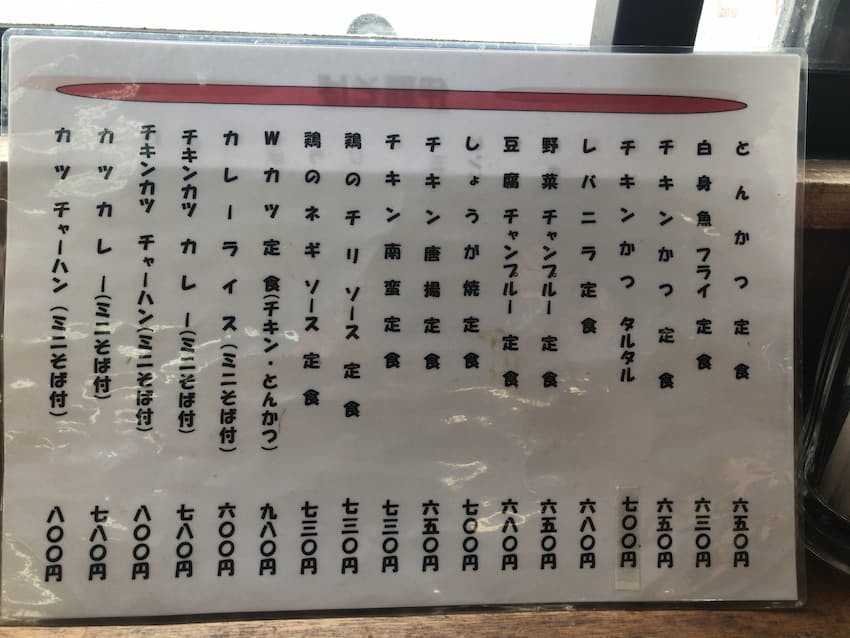 とんかつ定食 六五〇円
白身魚フライ定食 六三〇円
チキンかつ定食 六五〇円
チキンかつ タルタル 七〇〇円
レバニラ定食 六八〇円
野菜チャンプルー定食 六五〇円
豆腐チャンプルー定食 六八〇円
しょうが焼定食 七〇〇円
チキン唐揚定食 六五〇円
チキン南蛮定食 七三〇円
鶏のチリソース定食 七三〇円
鶏のネギソース定食 七三〇円
Wカツ定食(チキン・とんかつ) 九八〇円
カレーライス(ミニそば付) 六〇〇円
チキンカツカレー(ミニそば付) 七八〇円
チキンカツ チャーハン(ミニそば付) 八〇〇円
カツカレー(ミニそば付) 七八〇円
カツ チャーハン(ミニそば付) 八〇〇円